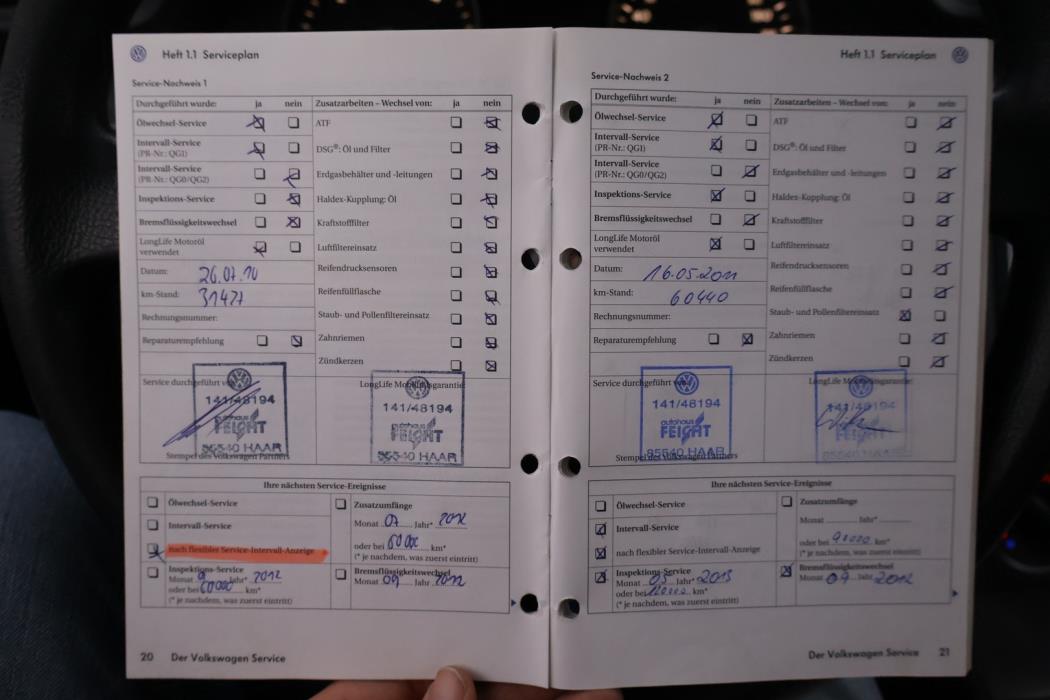 Heft 1.1 Serviceplan
Service-Nachweis 1
Durchgeführt wurde: ja nein
Zusatzarbeiten – Wechsel von: ja nein
Ölwechsel-Service
ATF
Intervall-Service
(PR-Nr.: QG1)
DSG®: Öl und Filter
Intervall-Service
(PR-Nr.: QG0/QG2)
Erdgasbehälter und -leitungen
Inspektions-Service
Haldex-Kupplung: Öl
Bremsflüssigkeitswechsel
Kraftstofffilter
LongLife Motoröl
verwendet
Luftfiltereinsatz
Datum: 26.07.10
Reifendrucksensoren
km-Stand: 31471
Reifenfüllflasche
Rechnungsnummer:
Staub- und Pollenfiltereinsatz
Reparaturempfehlung
Zahnriemen
Zündkerzen
Service durchgeführt
LongLife Mobilitätsgarantie
141/48194
autohaus
FEICHT
85540 HAAR
Stempel des Volkswagen Partners
141/48194
FEICHT
85540 HAAR
Ihre nächsten Service-Ereignisse
Ölwechsel-Service
Zusatzumfänge
Monat 07 Jahr* 2012
Intervall-Service
oder bei 60 000 km*
nach flexibler Service-Intervall-Anzeige
(* je nachdem, was zuerst eintritt)
Inspektions-Service
Monat 9 Jahr* 2012
oder bei 60 000 km*
(* je nachdem, was zuerst eintritt)
Bremsflüssigkeitswechsel
Monat 09 Jahr 2012
20 Der Volkswagen Service
Heft 1.1 Serviceplan
Service-Nachweis 2
Durchgeführt wurde: ja nein
Zusatzarbeiten – Wechsel von: ja nein
Ölwechsel-Service
ATF
Intervall-Service
(PR-Nr.: QG1)
DSG®: Öl und Filter
Intervall-Service
(PR-Nr.: QG0/QG2)
Erdgasbehälter und -leitungen
Inspektions-Service
Haldex-Kupplung: Öl
Bremsflüssigkeitswechsel
Kraftstofffilter
LongLife Motoröl
verwendet
Luftfiltereinsatz
Datum: 16.05.2011
Reifendrucksensoren
km-Stand: 60440
Reifenfüllflasche
Rechnungsnummer:
Staub- und Pollenfiltereinsatz
Reparaturempfehlung
Zahnriemen
Zündkerzen
Service durchgeführt
LongLife Mobilitätsgarantie
141/48194
autohaus
FEICHT
85540 HAAR
Stempel des Volkswagen Partners
141/48194
85540 HAAR
Ihre nächsten Service-Ereignisse
Ölwechsel-Service
Zusatzumfänge
Monat Jahr*
Intervall-Service
oder bei 90000 km*
nach flexibler Service-Intervall-Anzeige
(* je nachdem, was zuerst eintritt)
Inspektions-Service
Monat 05 Jahr* 2013
oder bei 120000 km*
(* je nachdem, was zuerst eintritt)
Bremsflüssigkeitswechsel
Monat 09 Jahr 2012
Der Volkswagen Service 21